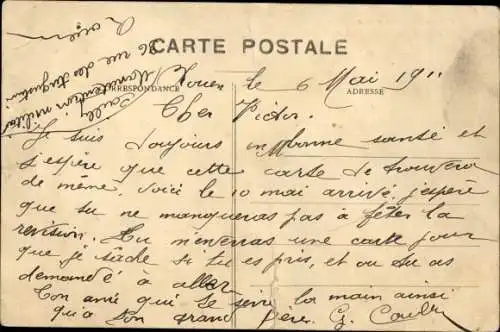 CARTE POSTALE
CORRESPONDANCE
ADRESSE
Rouen le 6 Mai 1911
Cher Victor.
Je suis toujours en bonne santé et
j'espère que cette carte te trouvera
de même, voici le 10 mai arrivé, j'espère
que tu ne manqueras pas à fêter la
revision. Tu m'enverras une carte pour
que je sâche si tu es pris, et ou tu as
demandé à aller
Ton amie qui te serre la main ainsi
qu'a ton grand père. G.
Rouen
36 rue des Augustins
Manutention militaire